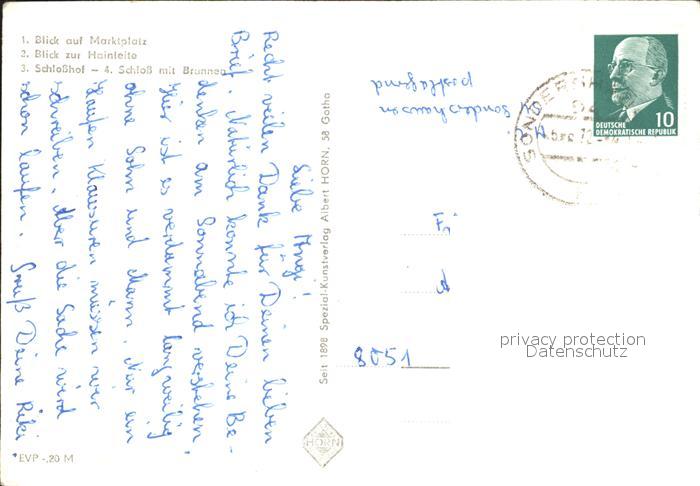 1. Blick auf Marktplatz
2. Blick zur Hainleite
3. Schloßhof – 4. Schloß mit Brunnen
Liebe Angi!
Recht vielen Dank für Deinen lieben
Brief. Natürlich konnte ich Deine Be-
denken am Sonnabend verstehen.
Hier ist es verdammt langweilig
ohne Sohn und Mann. Nur ein
Haufen Klausuren müssen wir
schreiben. Aber die Sache wird
schon laufen. Gruß Deine Riki.
EVP -,20 M
Seit 1898 Spezial-Kunstverlag Albert HORN, 58 Gotha
HORN
Sondershausen
postlagernd
Fr
8051
DEUTSCHE
DEMOKRATISCHE REPUBLIK
10
SONDERSHAUSEN
privacy protection
Datenschutz